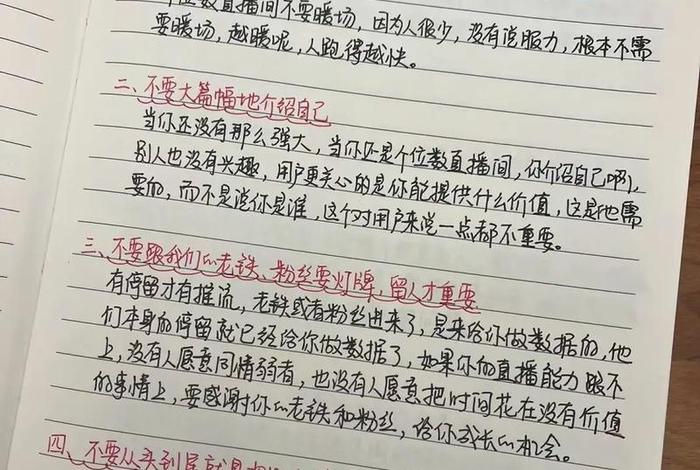 位数直播间不要暖场，因为人很少，没有说服力，根本不需
要暖场，越暖呢，人跑得越快。
二、不要大篇幅地介绍自己
当你还没有那么强大，当你还是个位数直播间，你介绍自己啊，
别人也没有兴趣，用户更关心的是你能提供什么价值，这是他需
要的，而不是说你是谁，这个对用户来说一点都不重要。
三、不要跟我们的老铁、粉丝要灯牌，留人才重要
有停留才有推流，老铁或者粉丝进来了，是来给你做数据的，他
们本身的停留就已经给你做数据了，如果你的直播能力跟不
上，没有人愿意同情弱者，也没有人愿意把时间花在没有价值
的事情上，要感谢你的老铁和粉丝，给你成长的机会。
四、不要从头到尾就是